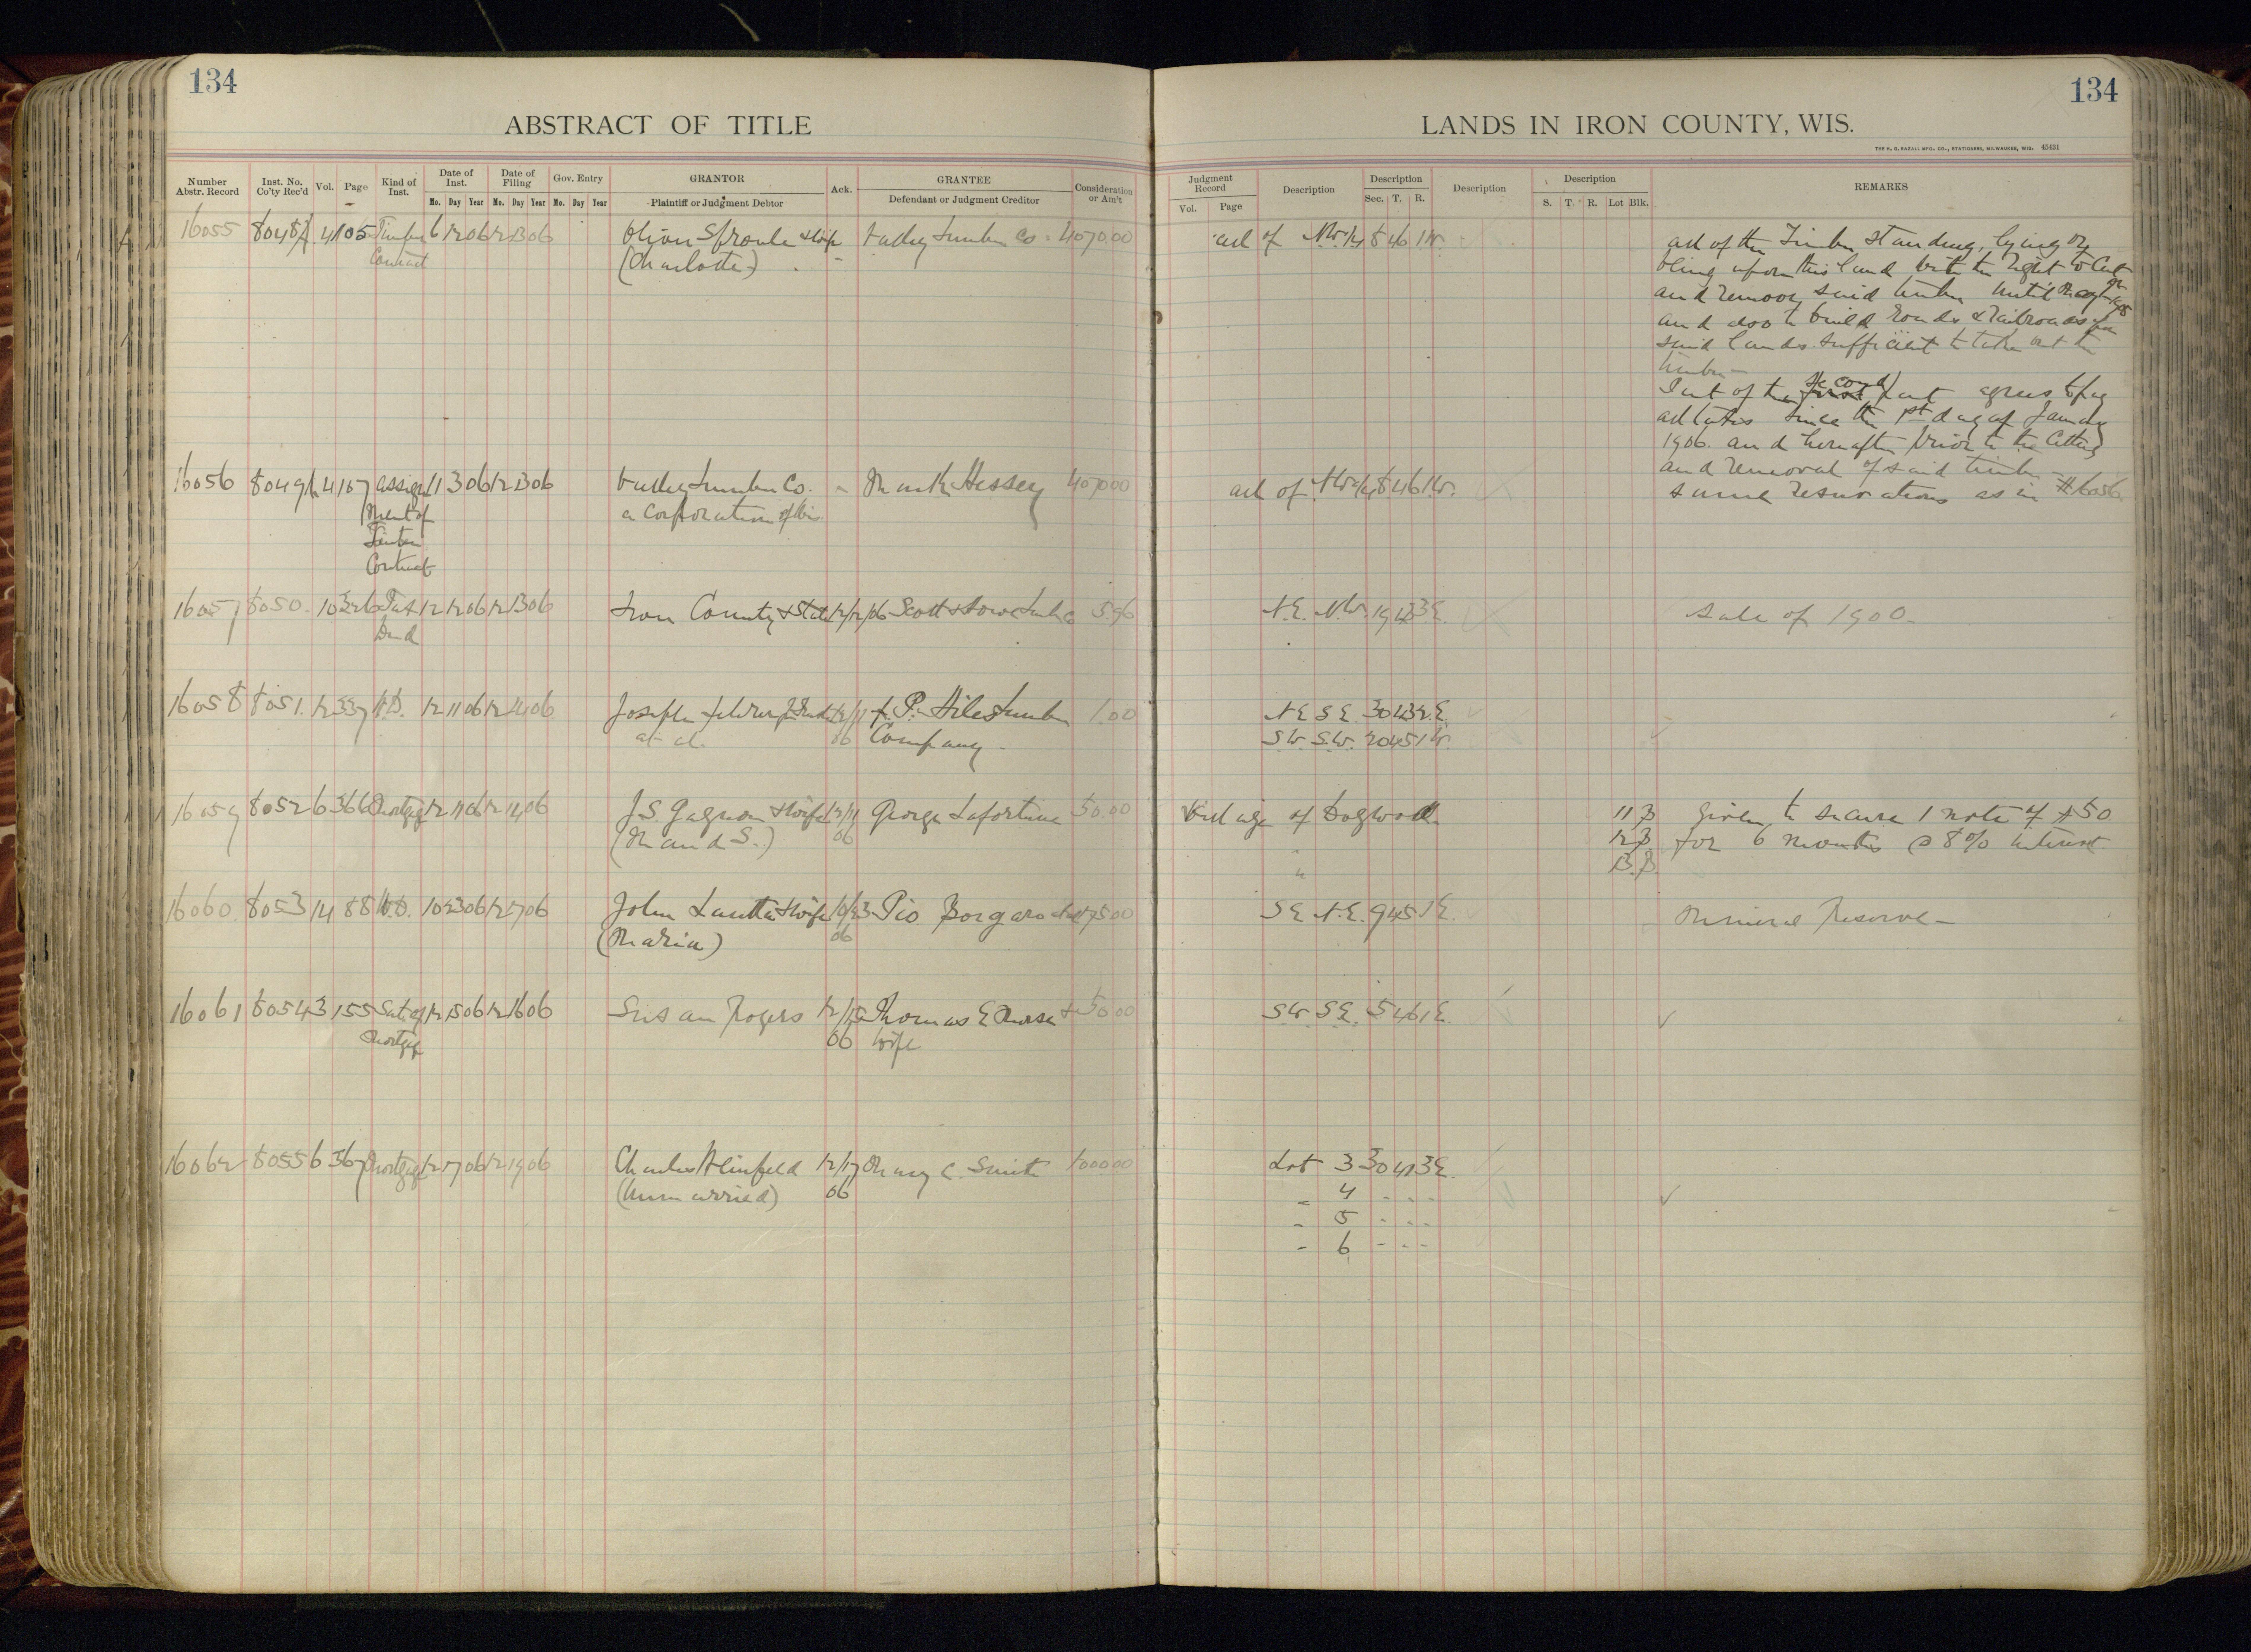 134
ABSTRACT OF TITLE
Number Abstr. Record
Inst. No. Co'ty Rec'd
Vol.
Page
Kind of Inst.
Date of Inst.
Mo. Day Year
Date of Filing
Mo. Day Year
Gov. Entry
Mo. Day Year
GRANTOR
Plaintiff or Judgment Debtor
Ack.
GRANTEE
Defendant or Judgment Creditor
Consideration or Am't
16055 8048 4 105 Timber 6 12 06 12 13 06 Oliver Sproule & Wife Lumber Co. 4070.00
Contract (Charlotte)
16056 8049 4 107 Assign 11 3 06 12 13 06 Lumber Co. Hessey 4070 00
ment of a Corporation of Wis.
Timber
Contract
16057 8050 10 326 Tax 12 12 06 12 13 06 Iron County & State 12/12/06 Scott & Howe Lumb Co 5.96
Deed
16058 8051 12 337 W.D. 12 11 06 12 14 06 Joseph 12/11 P. Hiles Lumber 1.00
et al. 06 Company
16059 8052 6 366 Mortgage 12 11 06 12 14 06 J.S. Gagnon & Wife 12/11 George Lafortune 50.00
(Maud S.) 06
16060 8053 14 88 W.D. 10 23 06 12 17 06 John Lautta & Wife 10/23 Pio 75 00
(Maria) 06
16061 8054 3 155 Sat. of 12 15 06 12 16 06 Susan Rogers 12/15 Thomas E Morse & 50 00
Mortgage 06 Wife
16062 8055 6 367 Mortgage 12 17 06 12 19 06 Charles 12/17 Mary C. Smith 1000 00
(Unmarried) 06
134
LANDS IN IRON COUNTY, WIS.
THE H. G. RAZALL MFG. CO., STATIONERS, MILWAUKEE, WIS. 45431
Judgment Record
Vol. Page
Description
Description
Sec. T. R.
Description
Description
S. T. R. Lot Blk.
REMARKS
all of NW 1/4 8 46 1W. all of the Timber standing, lying or
being upon this land with the right to cut
and remove said timber until
and also to build roads & railroads upon
said lands sufficient to take out the
timber -
Part of the second part agrees to pay
all taxes since the 1st day of January
1906. and hereafter prior to the cutting
and removal of said timber -
all of NW 1/4 8 46 1W. same reservations as in #16056
N.E. N.W. 19 43 3E. Sale of 1900.
N E S E. 30 43 2 E.
S.W. S.W. 20 45 1W.
Village of Dogwood 11 3 given to secure 1 note of $50
" 12 3 for 6 months @ 8% interest.
" 13. 3
S E N.E. 9 45 1E. Mineral Reserve -
S W S E. 5 46 1E.
Lot 3 30 41 3E.
" 4 " " "
" 5 " " "
" 6 " " "